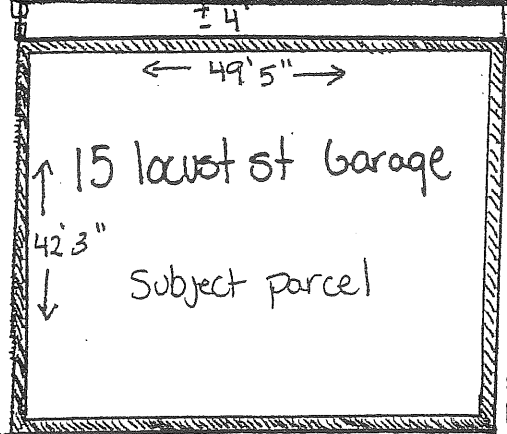 ± 4'
49'5"
15 locust st Garage
42'3"
Subject parcel